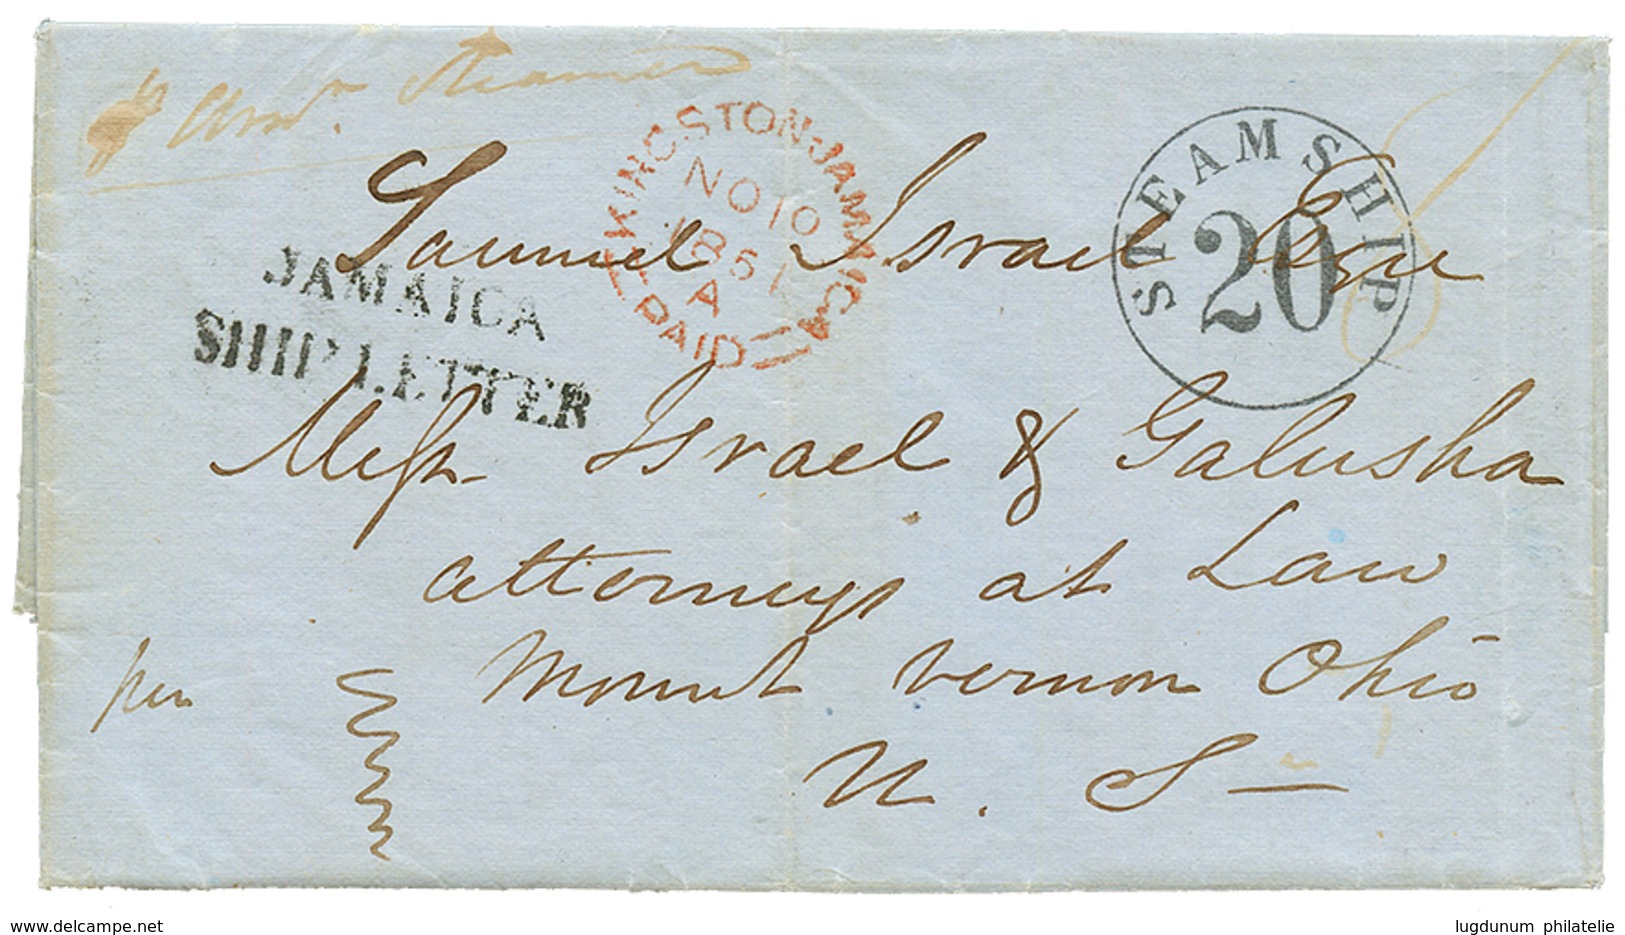 p Amn. Steamer
KINGSTON-JAMAICA
NO 10
1851
A
PAID
STEAM SHIP
20
JAMAICA
SHIP LETTER
Samuel Israel Esqu
Messrs Israel & Galusha
attorneys at Law
Mount Vernon Ohio
U. S-
per
www.delcampe.net
lugdunum philatelie